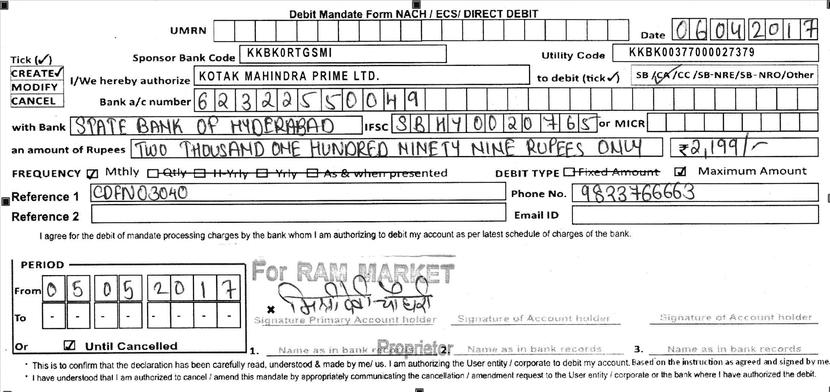 Debit Mandate Form NACH / ECS/ DIRECT DEBIT
UMRN Date 06042017
Tick (✓) Sponsor Bank Code KKBK0RTGSMI Utility Code KKBK00377000027379
CREATE✓ I/We hereby authorize KOTAK MAHINDRA PRIME LTD. to debit (tick✓) SB/CA/CC/SB-NRE/SB-NRO/Other
MODIFY
CANCEL Bank a/c number 62322550049
with Bank STATE BANK OF HYDERABAD IFSC SBHY0020765 or MICR
an amount of Rupees TWO THOUSAND ONE HUNDRED NINETY NINE RUPEES ONLY ₹2,199/-
FREQUENCY ☑ Mthly ☐ Qtly ☐ H-Yrly ☐ Yrly ☐ As & when presented DEBIT TYPE ☐ Fixed Amount ☑ Maximum Amount
Reference 1 CDFN03040 Phone No. 9823766663
Reference 2 Email ID
I agree for the debit of mandate processing charges by the bank whom I am authorizing to debit my account as per latest schedule of charges of the bank.
PERIOD
For RAM MARKET
From 05052017
To - - - - - - - -
Signature Primary Account holder Signature of Account holder Signature of Account holder
Or ☑ Until Cancelled
1. Name as in bank records 2. Name as in bank records 3. Name as in bank records
Proprietor
* This is to confirm that the declaration has been carefully read, understood & made by me/ us. I am authorizing the User entity / corporate to debit my account. Based on the instruction as agreed and signed by me.
* I have understood that I am authorized to cancel / amend this mandate by appropriately communicating the cancellation / amendment request to the User entity / corporate or the bank where I have authorized the debit.